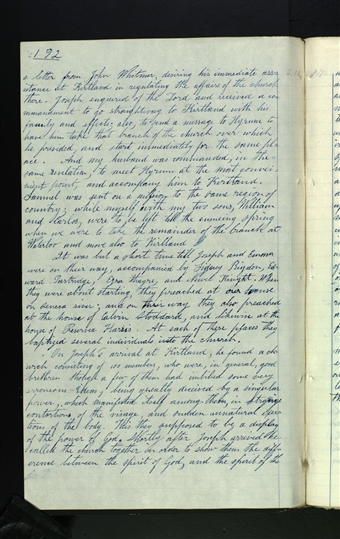 192
a letter from John Whitmer, desiring his immediate assis
tance at Kirtland in regulating the affairs of the church
there. Joseph enquired of the Lord and received a com
mandment to go straightway to Kirtland with his
family and effects; also, to send a message to Hyrum to
have him take that branch of the church over which
he presided, and start immediately for the same pl
ace. And my husband was commanded, in the
same revelation, to meet Hyrum at the most conveni
ent point, and accompany him to Kirtland.
Samuel was sent on a mission to the same region of
country; while myself with my two sons, William
and Carlos, were to be left till the ensueing spring
when we were to take the remainder of the branch at
Waterloo and move also to Kirtland
It was but a short time till Joseph and Emma
were on their way, accompanied by Sidney Rigdon, Ed
ward Partridge, Ezra Thayre, and Newel Knight. When
they were about starting, they preached at our house
on Seneca river; and on their way, they also preached
at the house of Calvin Stoddard, and likewise at the
house of Preserved Harris. At each of these places they
baptized several individuals into the church.
On Joseph's arrival at Kirtland, he found a ch
urch consisting of 100 members, who were, in general, good
brethren though a few of them had imbibed some very
erroneous Ideas, being greatly deceived by a singular
power, which manifested itself among them, in strange
contortions of the visage, and sudden unnatural exer
tions of the body. This they supposed to be a display
of the power of God. Shortly after Joseph arrived he
called the church together in order to show them the diff
erence between the Spirit of God, and the spirit of the